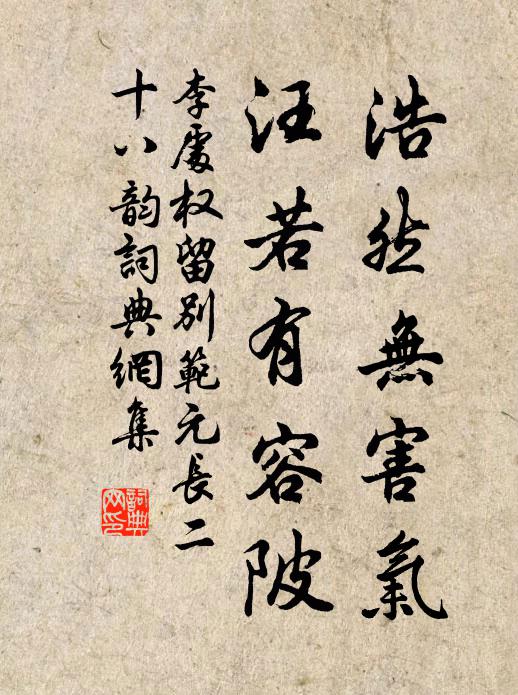 浩然無害氣
汪若有容陂
李處权留別範元長二
十八韵詞典網集
詞典
网印